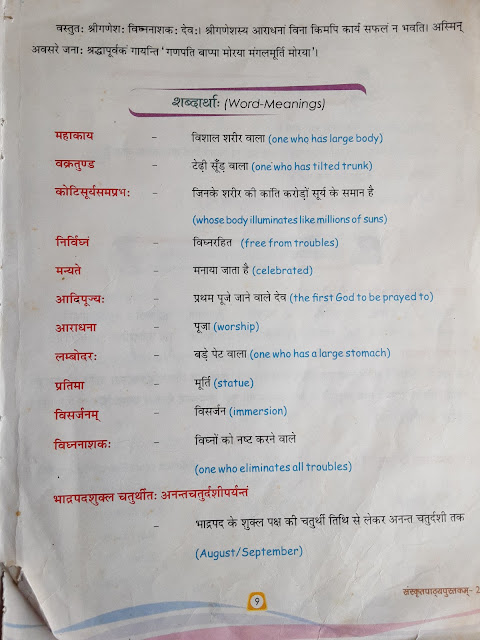 वस्तुतः श्रीगणेशः विघ्ननाशकः देवः। श्रीगणेशस्य आराधना विना किमपि कार्यं सफलं न भवति। अस्मिन्
अवसरे जनाः श्रद्धापूर्वकं गायन्ति ‘गणपति बाप्पा मोरया मंगलमूर्ति मोरया’।
शब्दार्थाः (Word-Meanings)
महाकाय - विशाल शरीर वाला (one who has large body)
वक्रतुण्ड - टेढ़ी सूँड़ वाला (one who has tilted trunk)
कोटिसूर्यसमप्रभः - जिनके शरीर की कांति करोड़ों सूर्य के समान है
(whose body illuminates like millions of suns)
निर्विघ्नं - विघ्नरहित (free from troubles)
मन्यते - मनाया जाता है (celebrated)
आदिपूज्यः - प्रथम पूजे जाने वाले देव (the first God to be prayed to)
आराधना - पूजा (worship)
लम्बोदरः - बड़े पेट वाला (one who has a large stomach)
प्रतिमा - मूर्ति (statue)
विसर्जनम् - विसर्जन (immersion)
विघ्ननाशकः - विघ्नों को नष्ट करने वाले
(one who eliminates all troubles)
भाद्रपदशुक्ल चतुर्थीतः अनन्तचतुर्दशीपर्यन्तं
- भाद्रपद के शुक्ल पक्ष की चतुर्थी तिथि से लेकर अनन्त चतुर्दशी तक
(August/September)
संस्कृतपाठ्यपुस्तकम्- 2
9